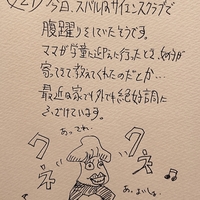 今日、スバルなサイエンスクラブで
腹躍りをしていたそうです。
ママが学童に迎えに行ったとき、女の子が
寄ってきて教えてくれたのだとか…
最近は家でも外でも絶好調に
ふざけています。
あっ それ
クネ
クネ
あ、よいしょ